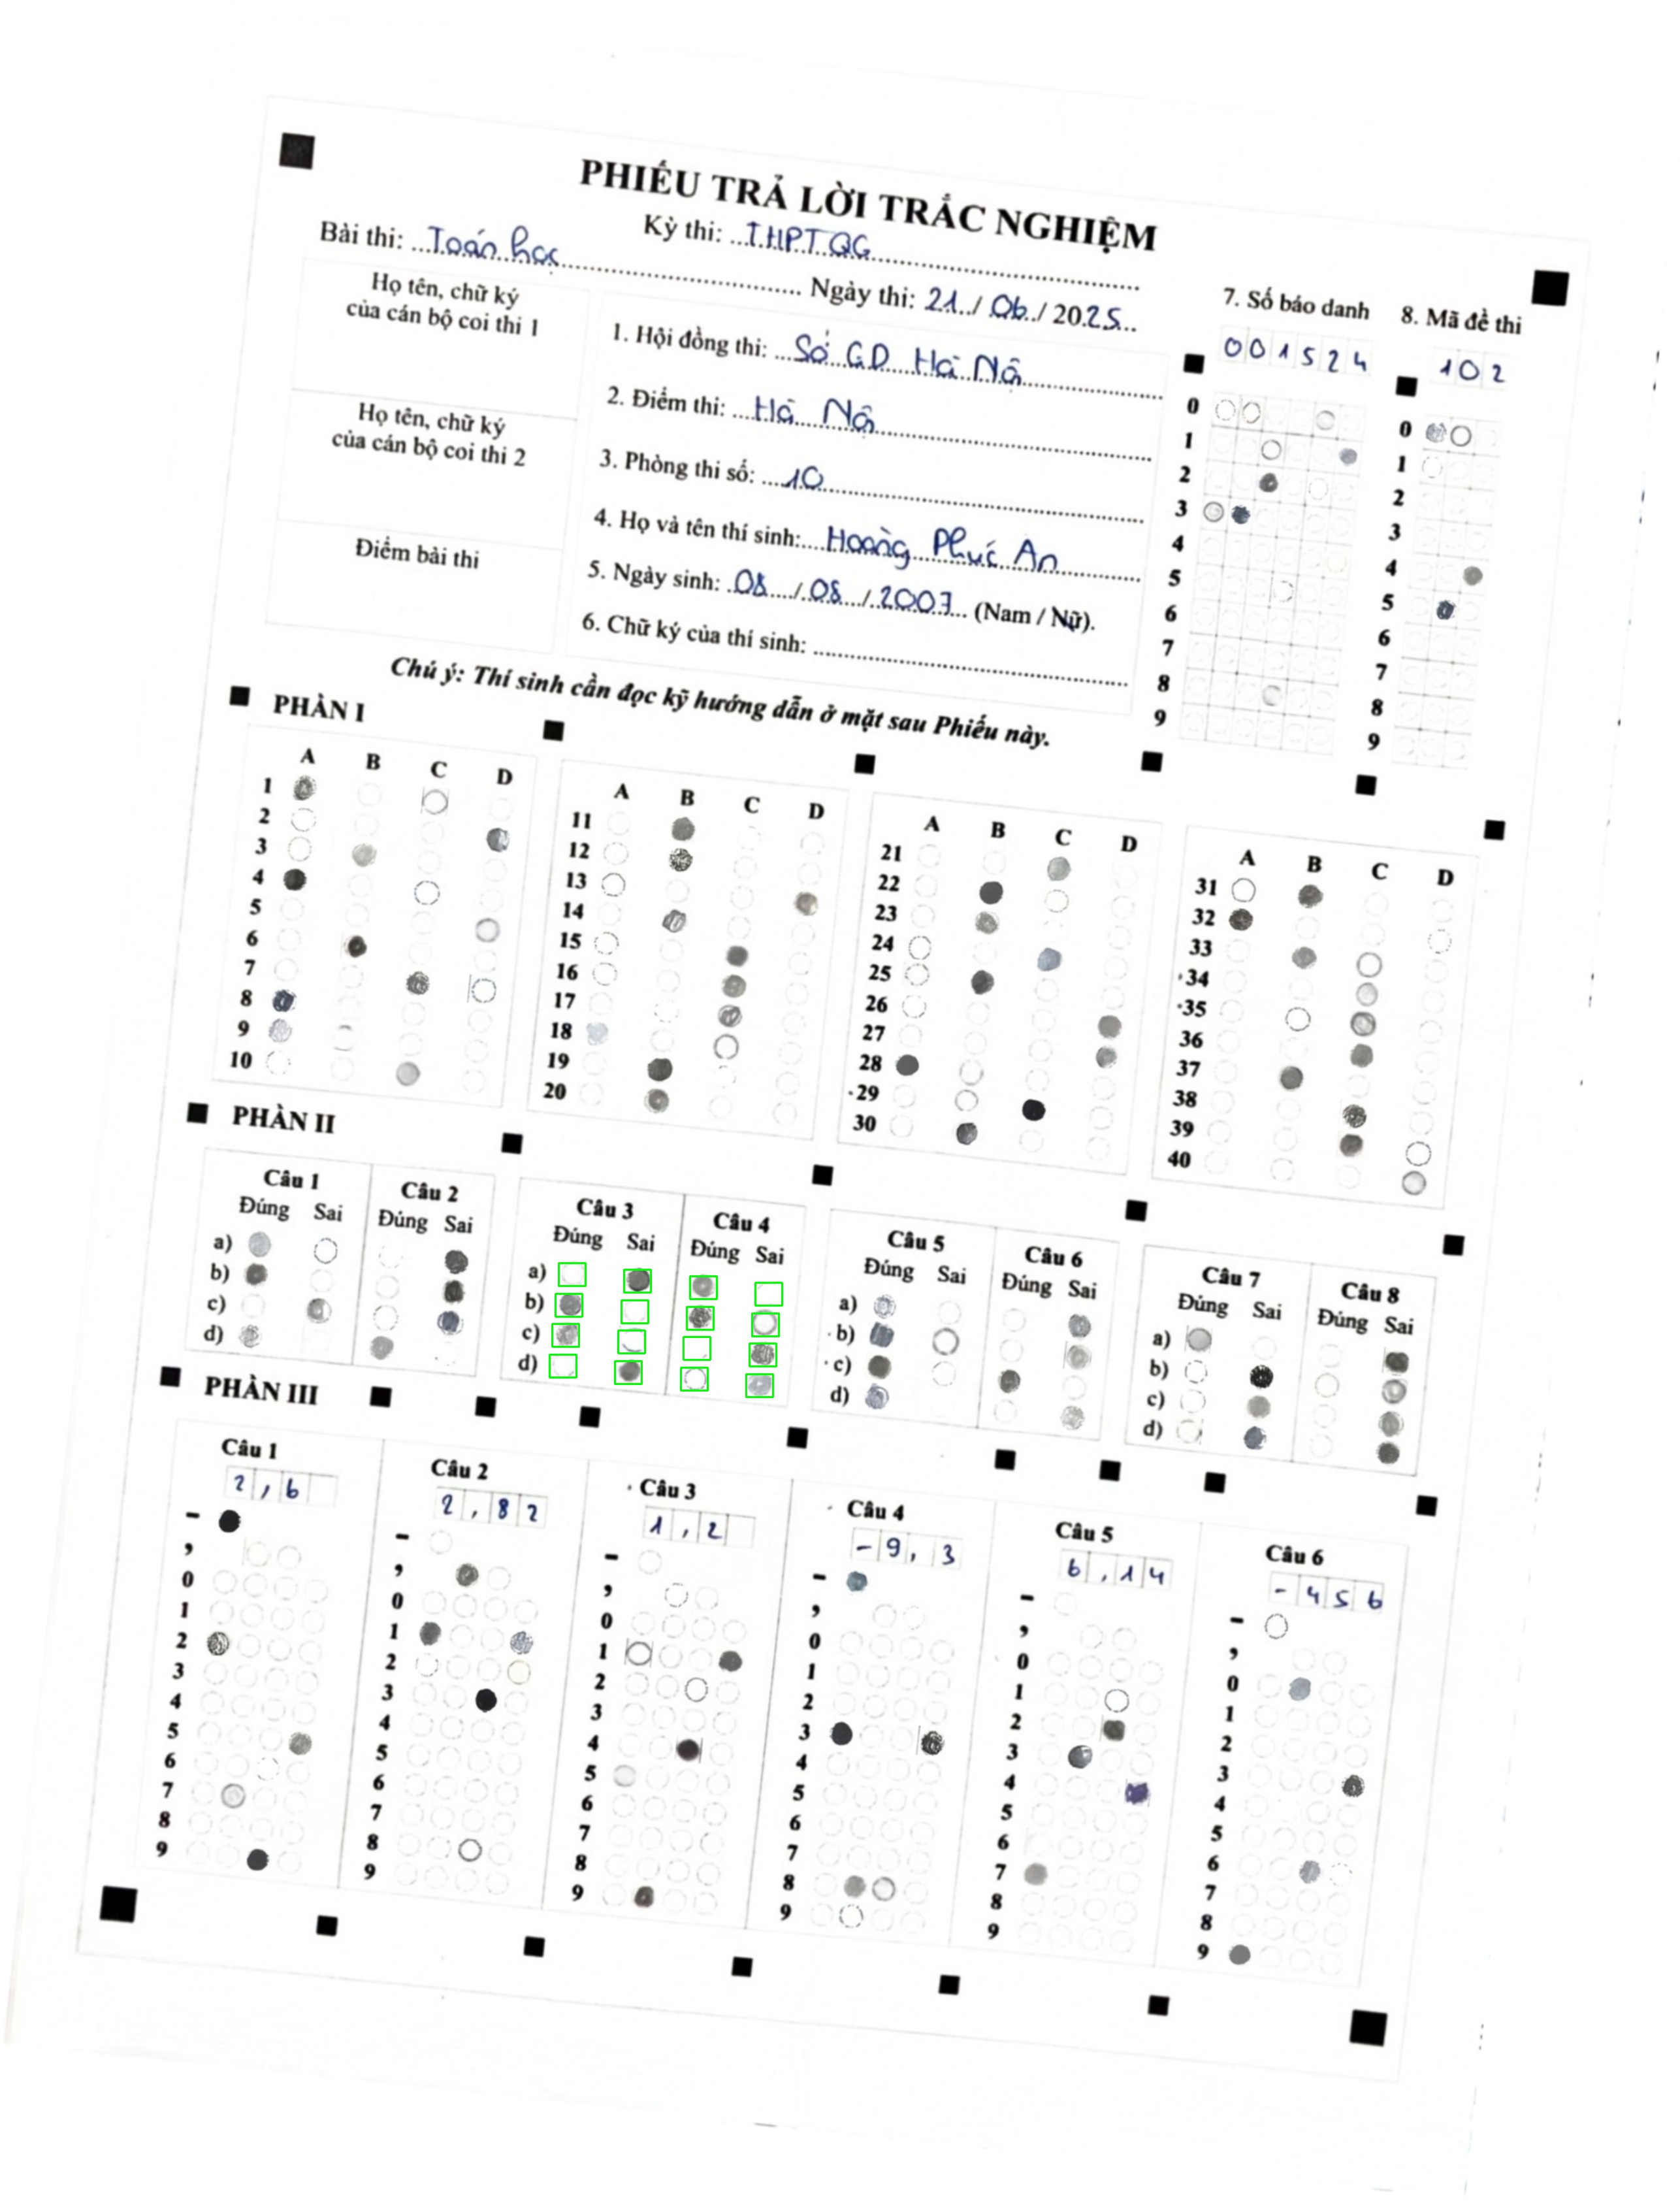 PHIẾU TRẢ LỜI TRẮC NGHIỆM
Bài thi: ...Toán học... Kỳ thi: ...THPTQG...
Ngày thi: 21 / 06 / 2025
Họ tên, chữ ký
của cán bộ coi thi 1
Họ tên, chữ ký
của cán bộ coi thi 2
Điểm bài thi
1. Hội đồng thi: ...Sở GD Hà Nội
2. Điểm thi: ...Hà Nội
3. Phòng thi số: ...10
4. Họ và tên thí sinh: ...Hoàng Phúc An
5. Ngày sinh: 08 / 08 / 2007 (Nam / Nữ).
6. Chữ ký của thí sinh: ...
7. Số báo danh
001524
0
1
2
3
4
5
6
7
8
9
8. Mã đề thi
102
0
1
2
3
4
5
6
7
8
9
Chú ý: Thí sinh cần đọc kỹ hướng dẫn ở mặt sau Phiếu này.
PHẦN I
A B C D
1
2
3
4
5
6
7
8
9
10
A B C D
11
12
13
14
15
16
17
18
19
20
A B C D
21
22
23
24
25
26
27
28
29
30
A B C D
31
32
33
34
35
36
37
38
39
40
PHẦN II
Câu 1 Câu 2
Đúng Sai Đúng Sai
a)
b)
c)
d)
Câu 3 Câu 4
Đúng Sai Đúng Sai
a)
b)
c)
d)
Câu 5 Câu 6
Đúng Sai Đúng Sai
a)
b)
c)
d)
Câu 7 Câu 8
Đúng Sai Đúng Sai
a)
b)
c)
d)
PHẦN III
Câu 1
2,6
-
,
0
1
2
3
4
5
6
7
8
9
Câu 2
2,82
-
,
0
1
2
3
4
5
6
7
8
9
Câu 3
1,2
-
,
0
1
2
3
4
5
6
7
8
9
Câu 4
-9,3
-
,
0
1
2
3
4
5
6
7
8
9
Câu 5
6,14
-
,
0
1
2
3
4
5
6
7
8
9
Câu 6
-456
-
,
0
1
2
3
4
5
6
7
8
9